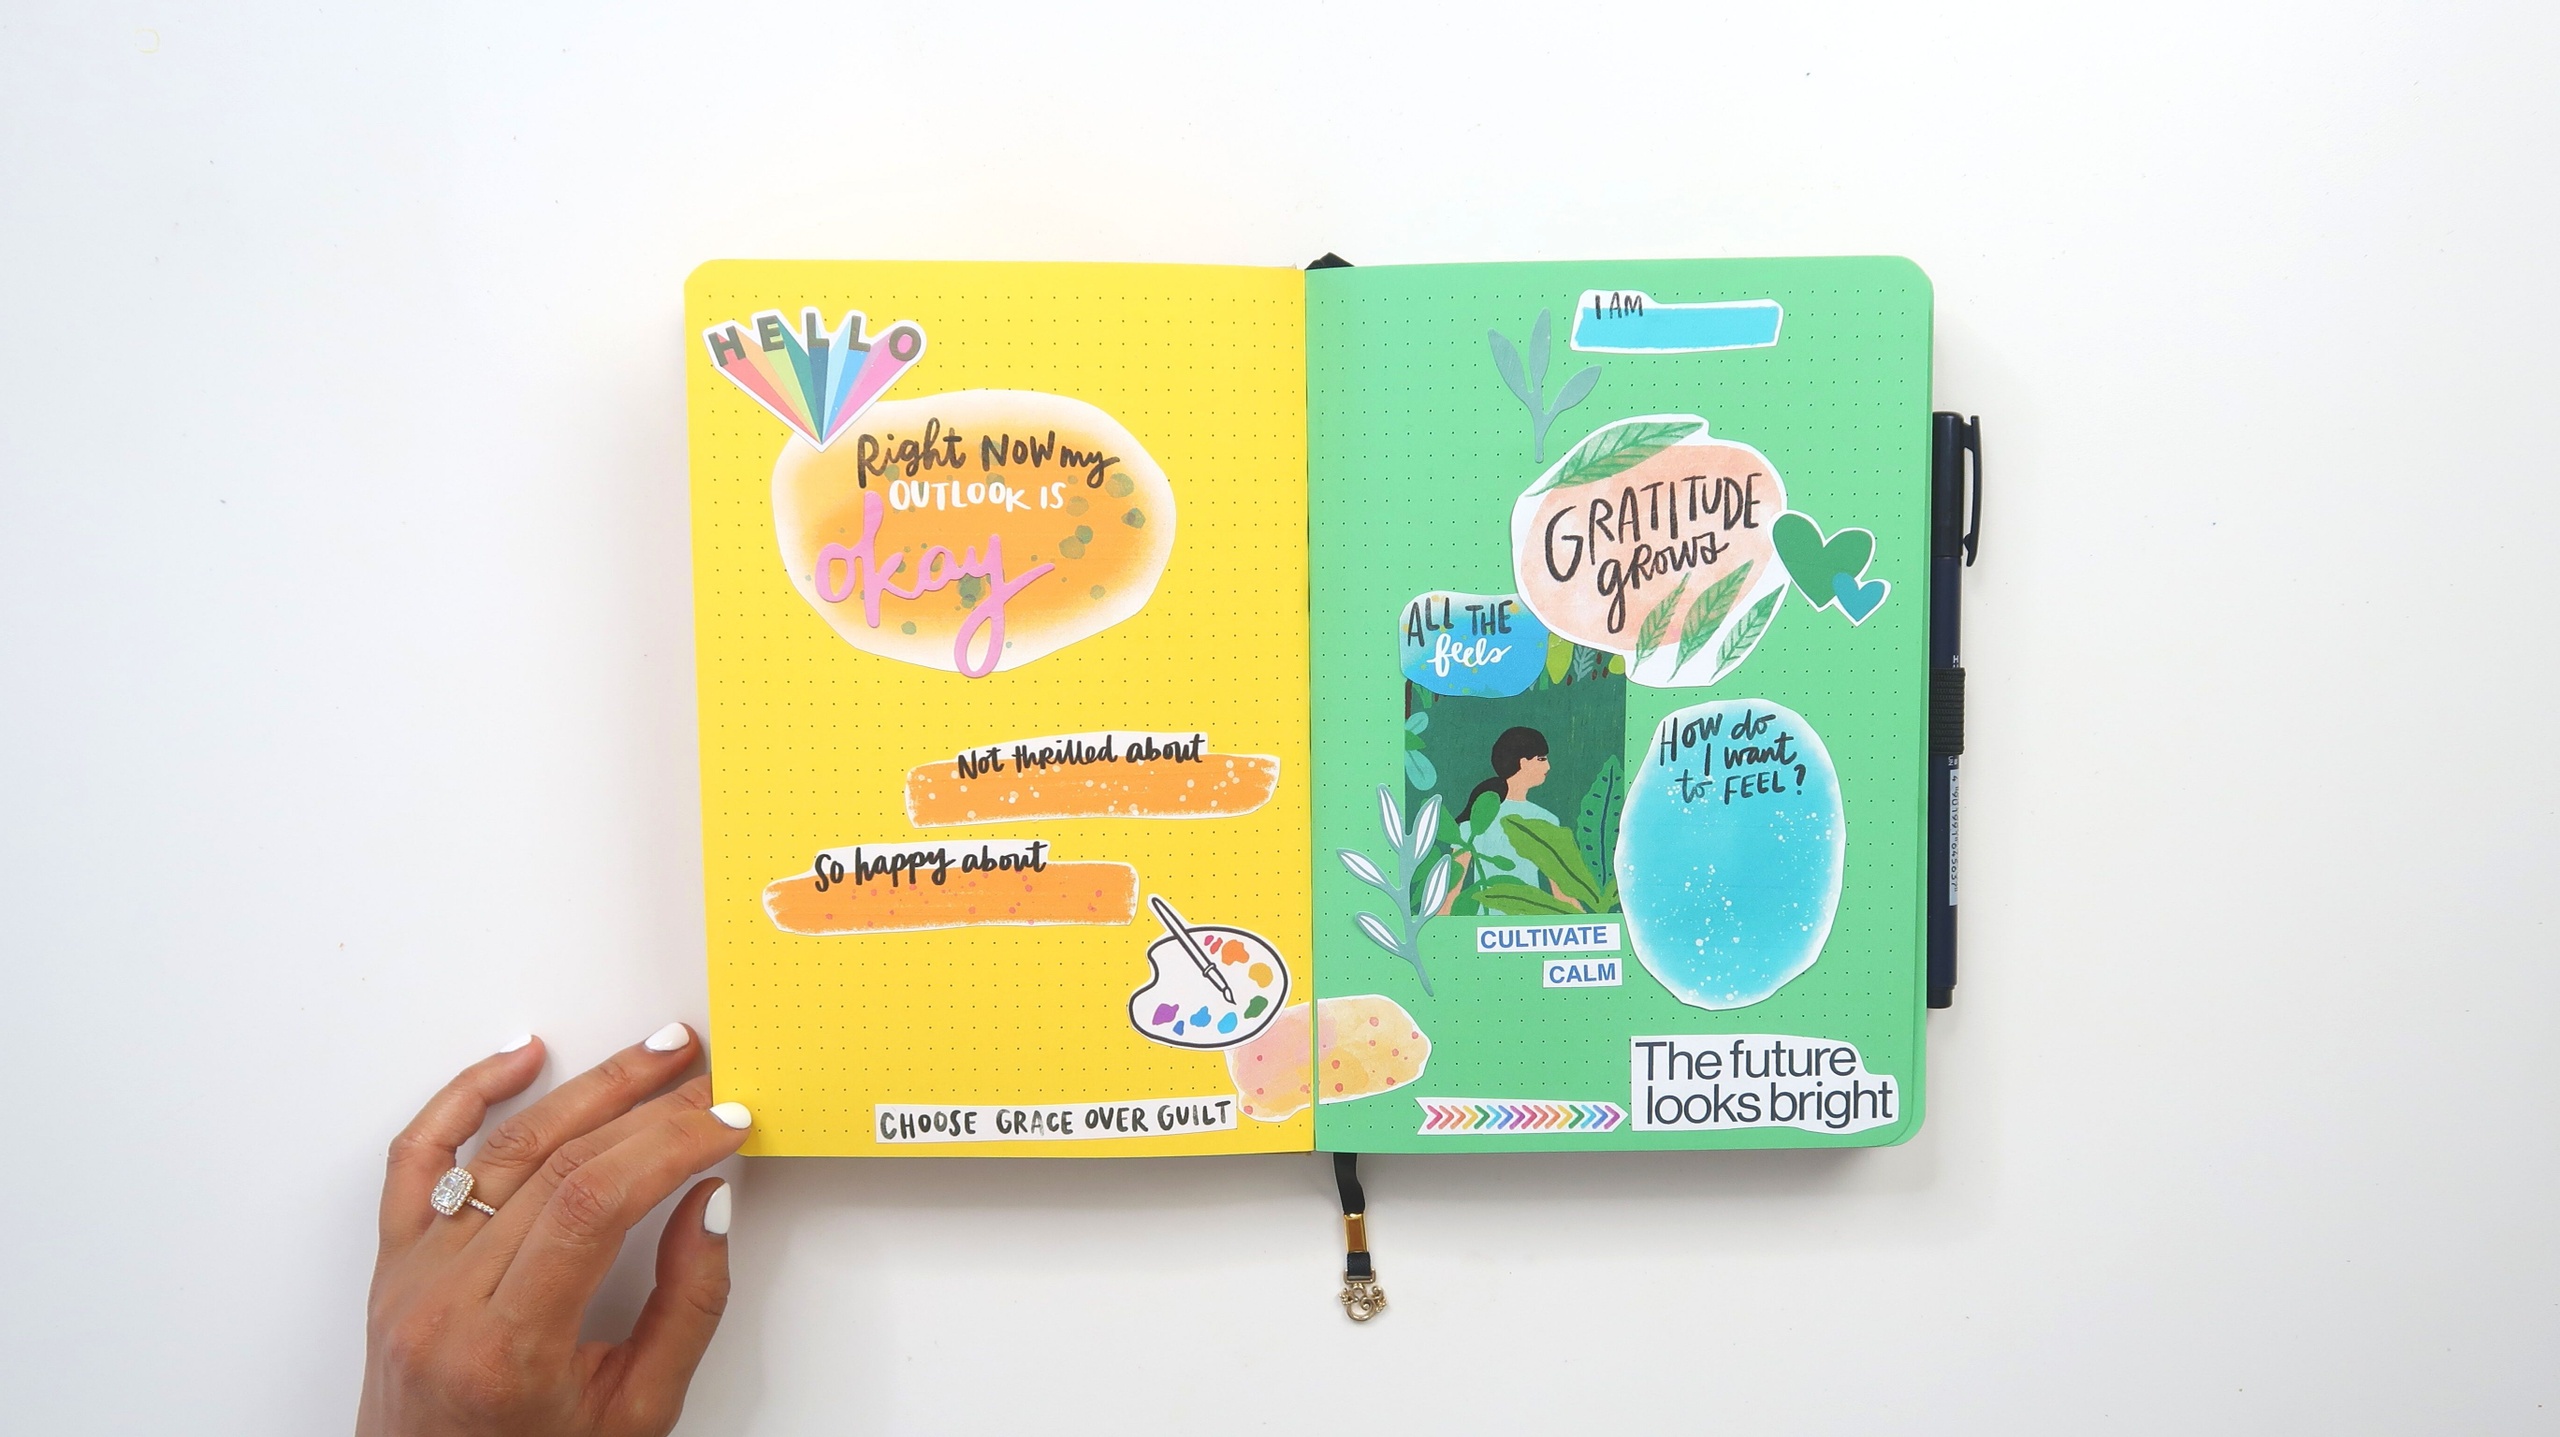 HELLO
Right NOW my
OUTLOOK IS
okay
Not thrilled about
So happy about
CHOOSE GRACE OVER GUILT
I AM
GRATITUDE
grows
ALL THE
feels
How do
I want
to FEEL?
CULTIVATE
CALM
The future
looks bright